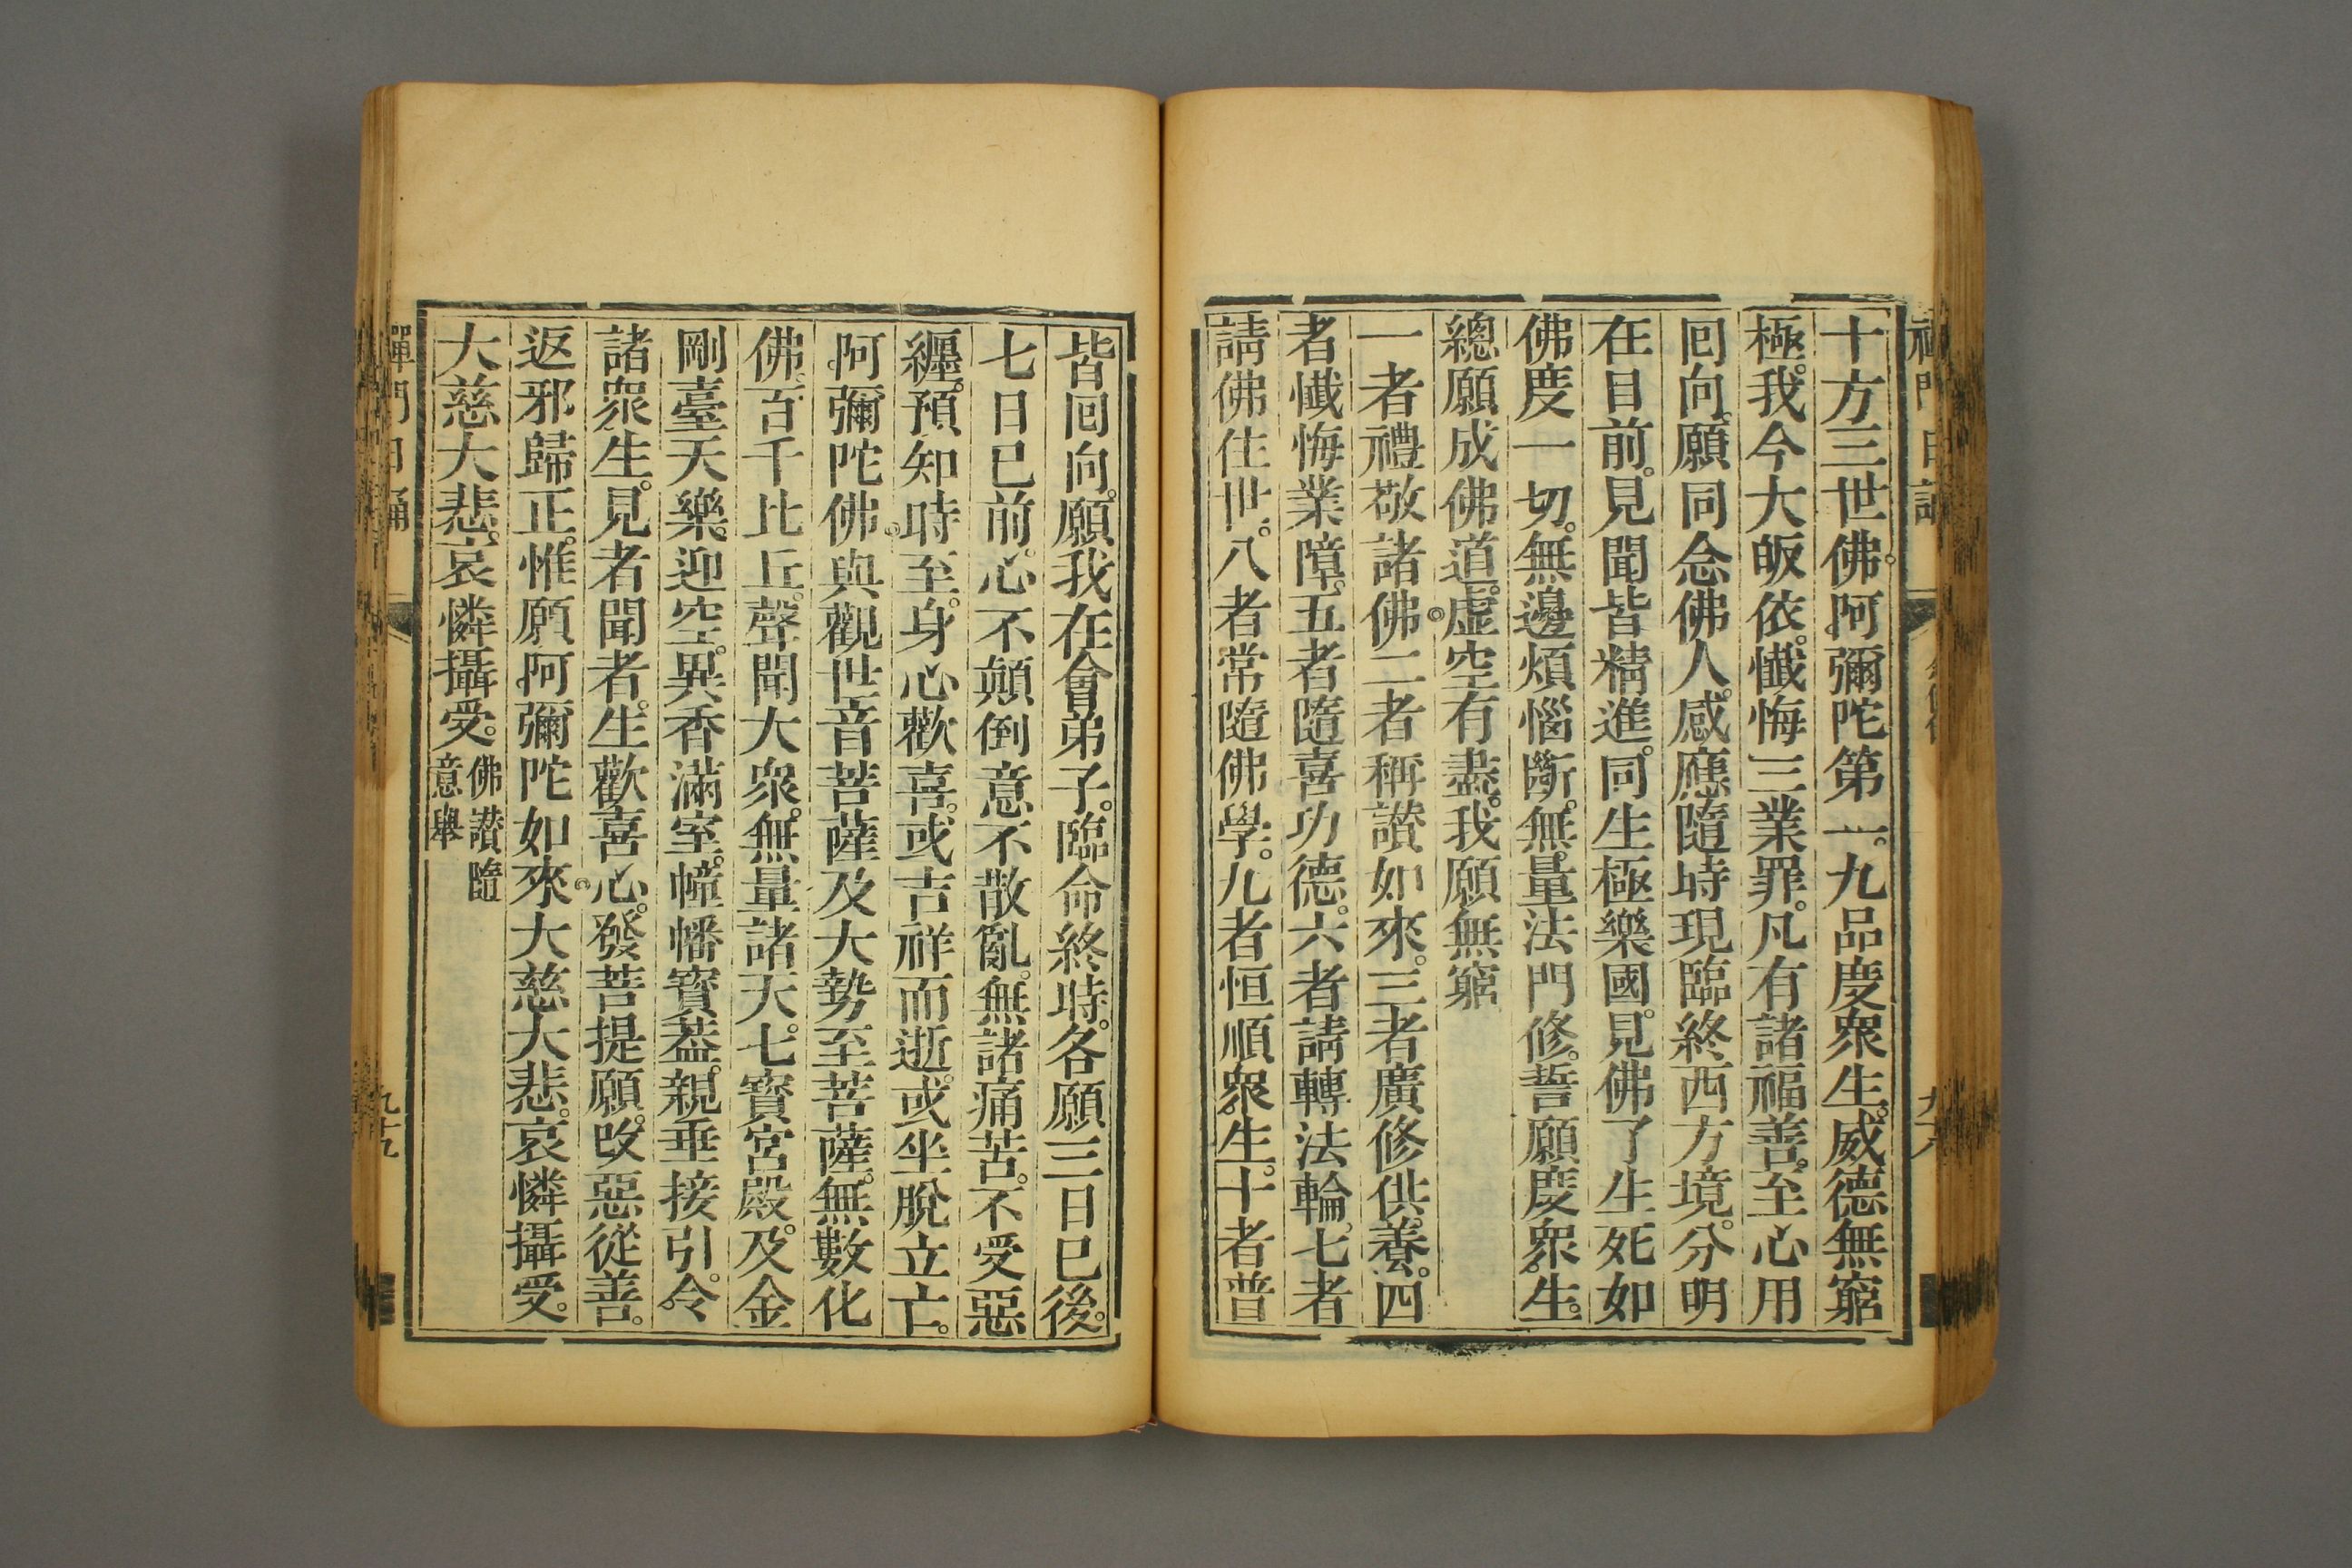 十方三世佛。阿彌陀第一。九品度衆生。威德無窮
極。我今大皈依。懺悔三業罪。凡有諸福善。至心用
囘向。願同念佛人。感應隨時現。臨終西方境。分明
在目前。見聞皆精進。同生極樂國。見佛了生死。如
佛度一切。無邊煩惱斷。無量法門修。誓願度衆生。
總願成佛道。虛空有盡。我願無窮。
一者禮敬諸佛二者稱讃如來。三者廣修供養。四
者懺悔業障。五者隨喜功德。六者請轉法輪。七者
請佛住世。八者常隨佛學。九者恒順衆生。十者普
皆囘向。願我在會弟子。臨命終時。各願三日已後。
七日已前。心不顛倒意不散亂。無諸痛苦。不受惡
纏。預知時至。身心歡喜。或吉祥而逝。或坐脫立亡。
阿彌陀佛。與觀世音菩薩及大勢至菩薩。無數化
佛。百千比丘。聲聞大衆。無量諸天。七寳宮殿。及金
剛臺天樂。迎空。異香滿室。幢幡寳葢。親垂接引。令
諸衆生。見者聞者。生歡喜心。發菩提願。改惡從善。
返邪歸正。惟願阿彌陀如來。大慈大悲。哀憐攝受。
大慈大悲。哀憐攝受。佛讃隨
意舉
禪門日誦
九十九